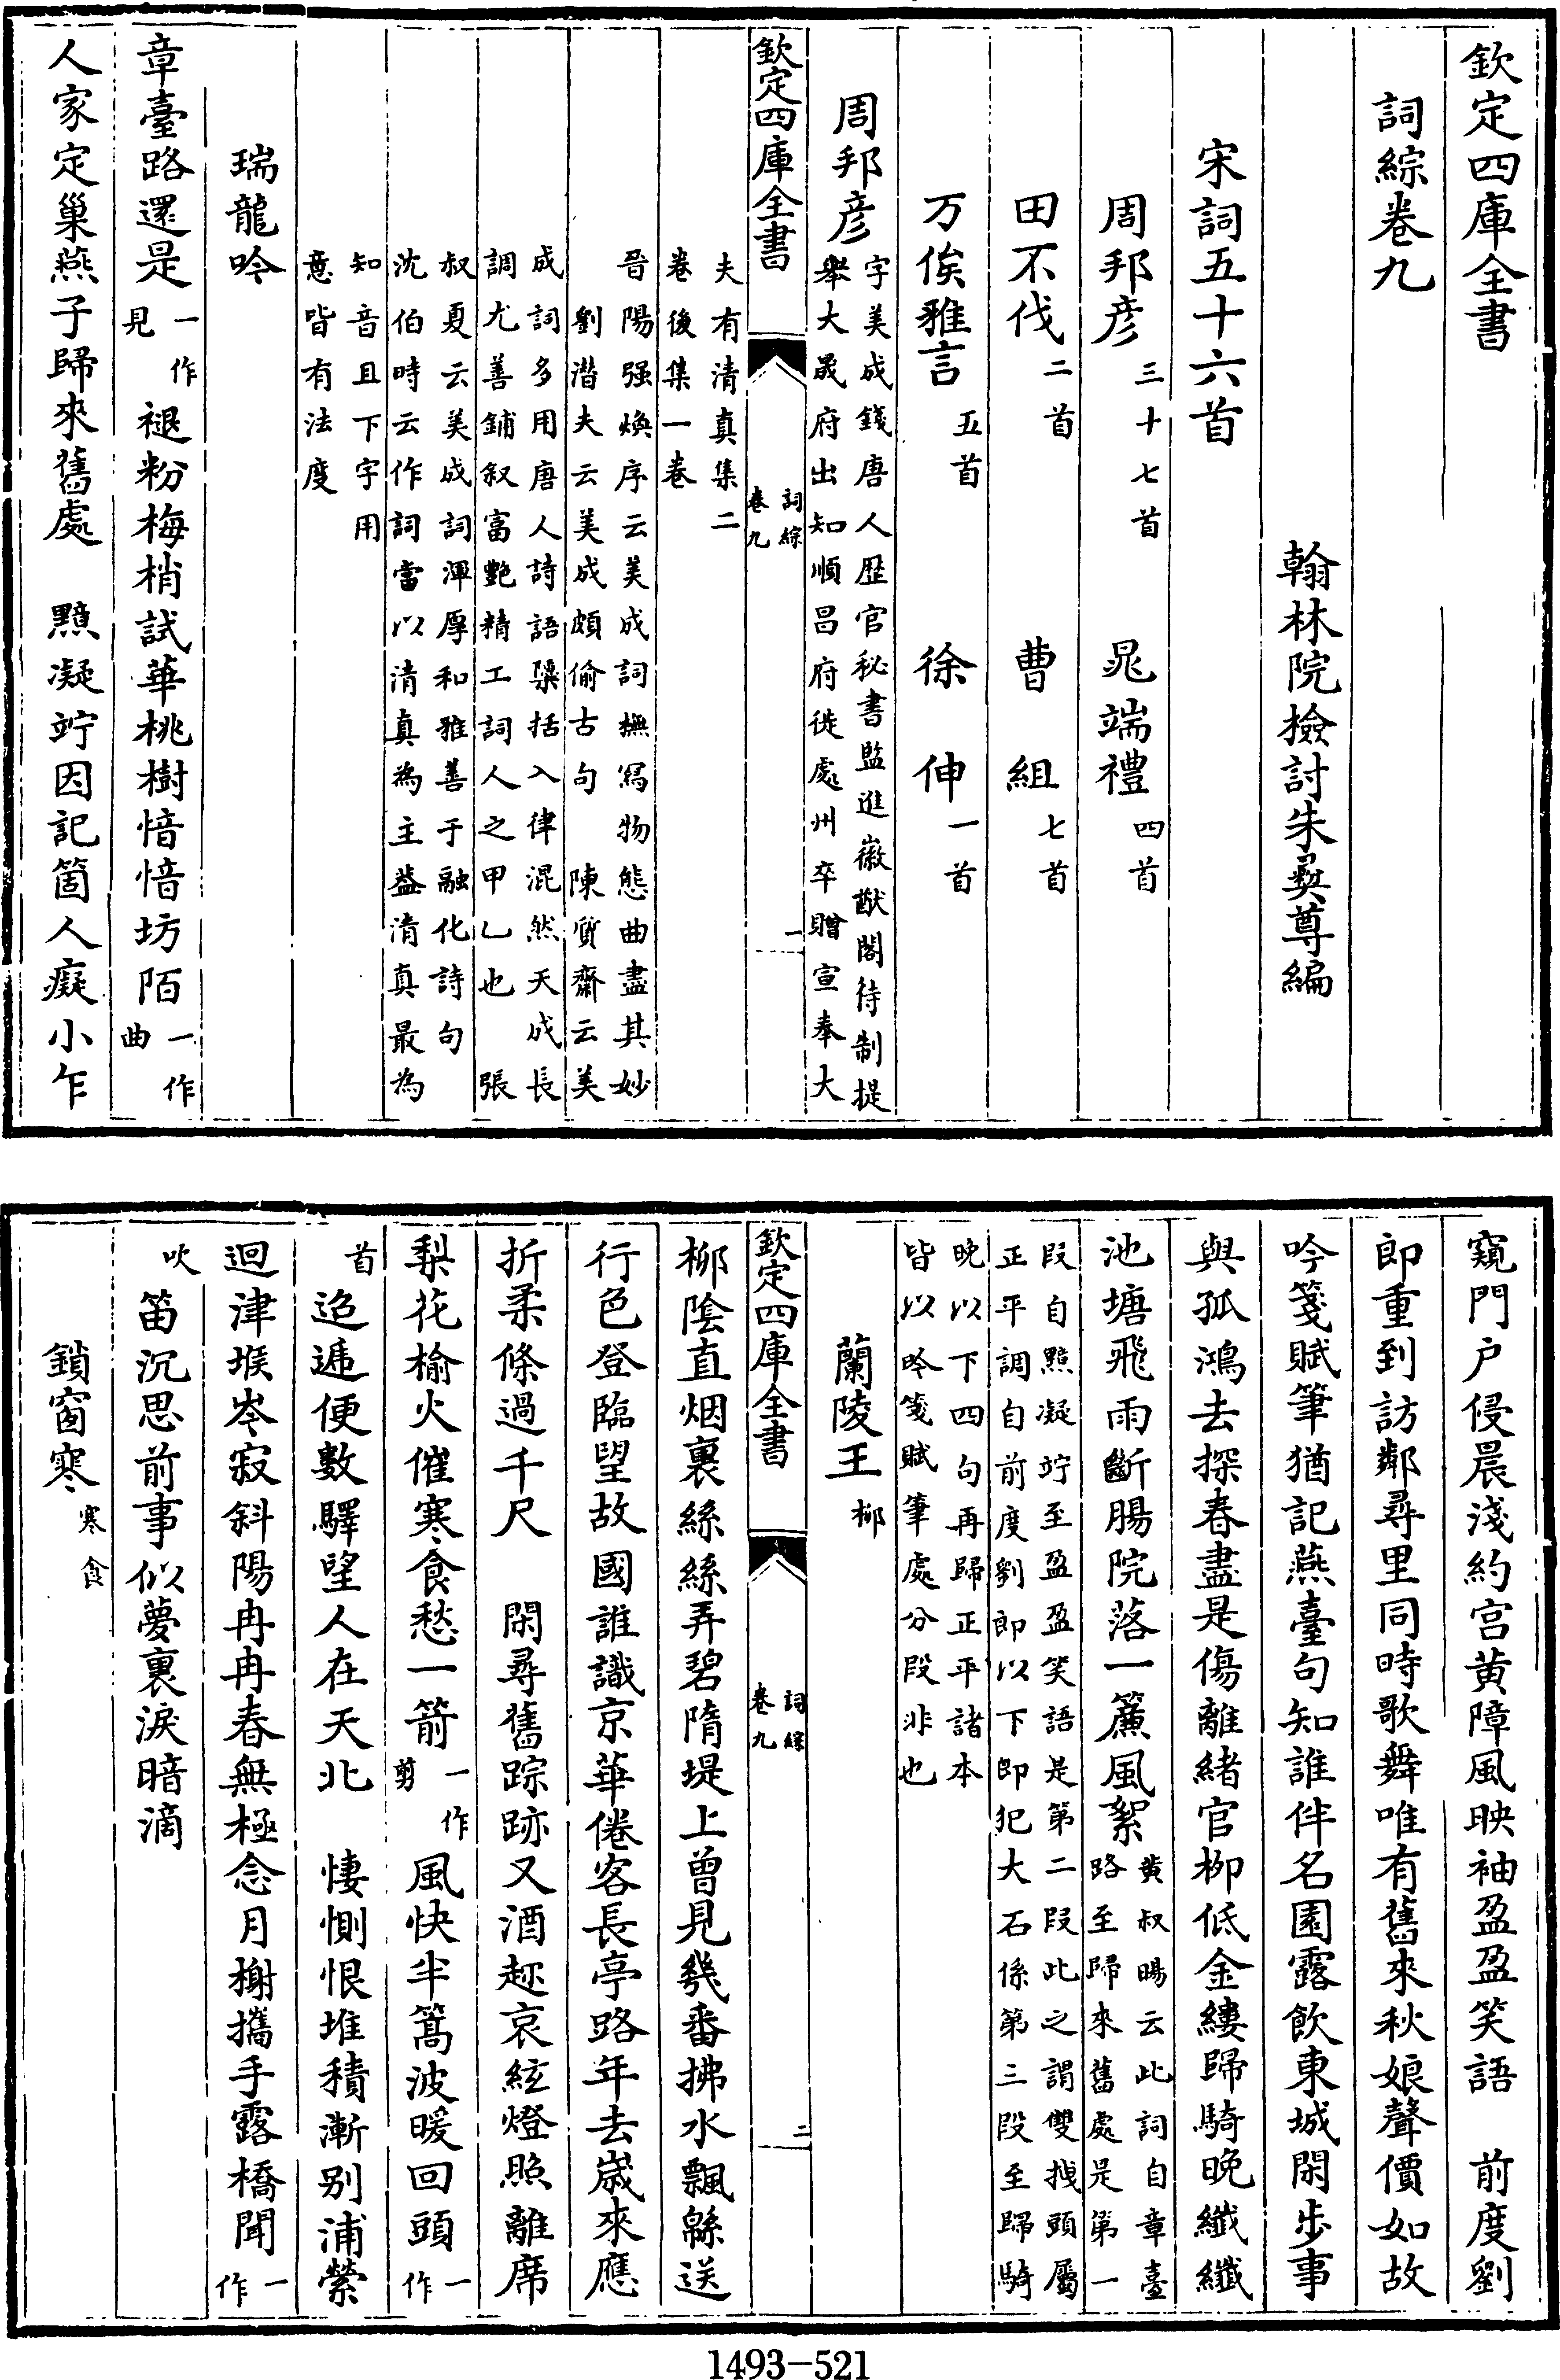 欽定四庫全書
詞綜卷九
翰林院檢討朱彝尊編
宋詞五十六首
周邦彦三十七首 晁端禮四首
田不伐二首 曹組七首
万俟雅言五首 徐伸一首
周邦彦字美成錢唐人歴官秘書監進徽猷閣待制提
舉大晟府出知順昌府徙處州卒贈宣奉大
欽定四庫全書 詞綜卷九 一
夫有清真集二
卷後集一卷
晉陽强煥序云美成詞撫寫物態曲盡其妙
劉潛夫云美成頗偷古句 陳質齋云美
成詞多用唐人詩語櫽括入律混然天成長
調尤善鋪叙富艷精工詞人之甲乙也 張
叔夏云美成詞渾厚和雅善于融化詩句
沈伯時云作詞當以清真為主葢清真最為
知音且下字用
意皆有法度
瑞龍吟
章臺路還是一作見褪粉梅梢試華桃樹愔愔坊陌一作曲
人家定巢燕子歸來舊處 黯凝竚因記箇人癡小乍
窺門户侵晨淺約宫黄障風映袖盈盈笑語 前度劉
郎重到訪鄰尋里同時歌舞唯有舊來秋娘聲價如故
吟箋賦筆猶記燕臺句知誰伴名園露飲東城閑步事
與孤鴻去探春盡是傷離緒官柳低金縷歸騎晚纖纖
池塘飛雨斷腸院落一簾風絮黄叔暘云此詞自章臺
路至歸來舊處是第一
段自黯凝竚至盈盈笑語是第二段此之謂雙拽頭屬
正平調自前度劉郎以下即犯大石係第三段至歸騎
晚以下四句再歸正平諸本
皆以吟箋賦筆處分段非也
蘭陵王柳
欽定四庫全書 詞綜卷九 二
柳陰直烟裏絲絲弄碧隋堤上曾見幾番拂水飄緜送
行色登臨望故國誰識京華倦客長亭路年去歲來應
折柔條過千尺 閑尋舊踪跡又酒趂哀絃燈照離席
梨花榆火催寒食愁一箭一作剪風快半篙波暖回頭一作
首迢遞便數驛望人在天北 悽惻恨堆積漸别浦縈
迴津堠岑寂斜陽冉冉春無極念月榭攜手露橋聞一作
吹笛沉思前事似夢裏淚暗滴
鎖窗寒寒食
1493-521